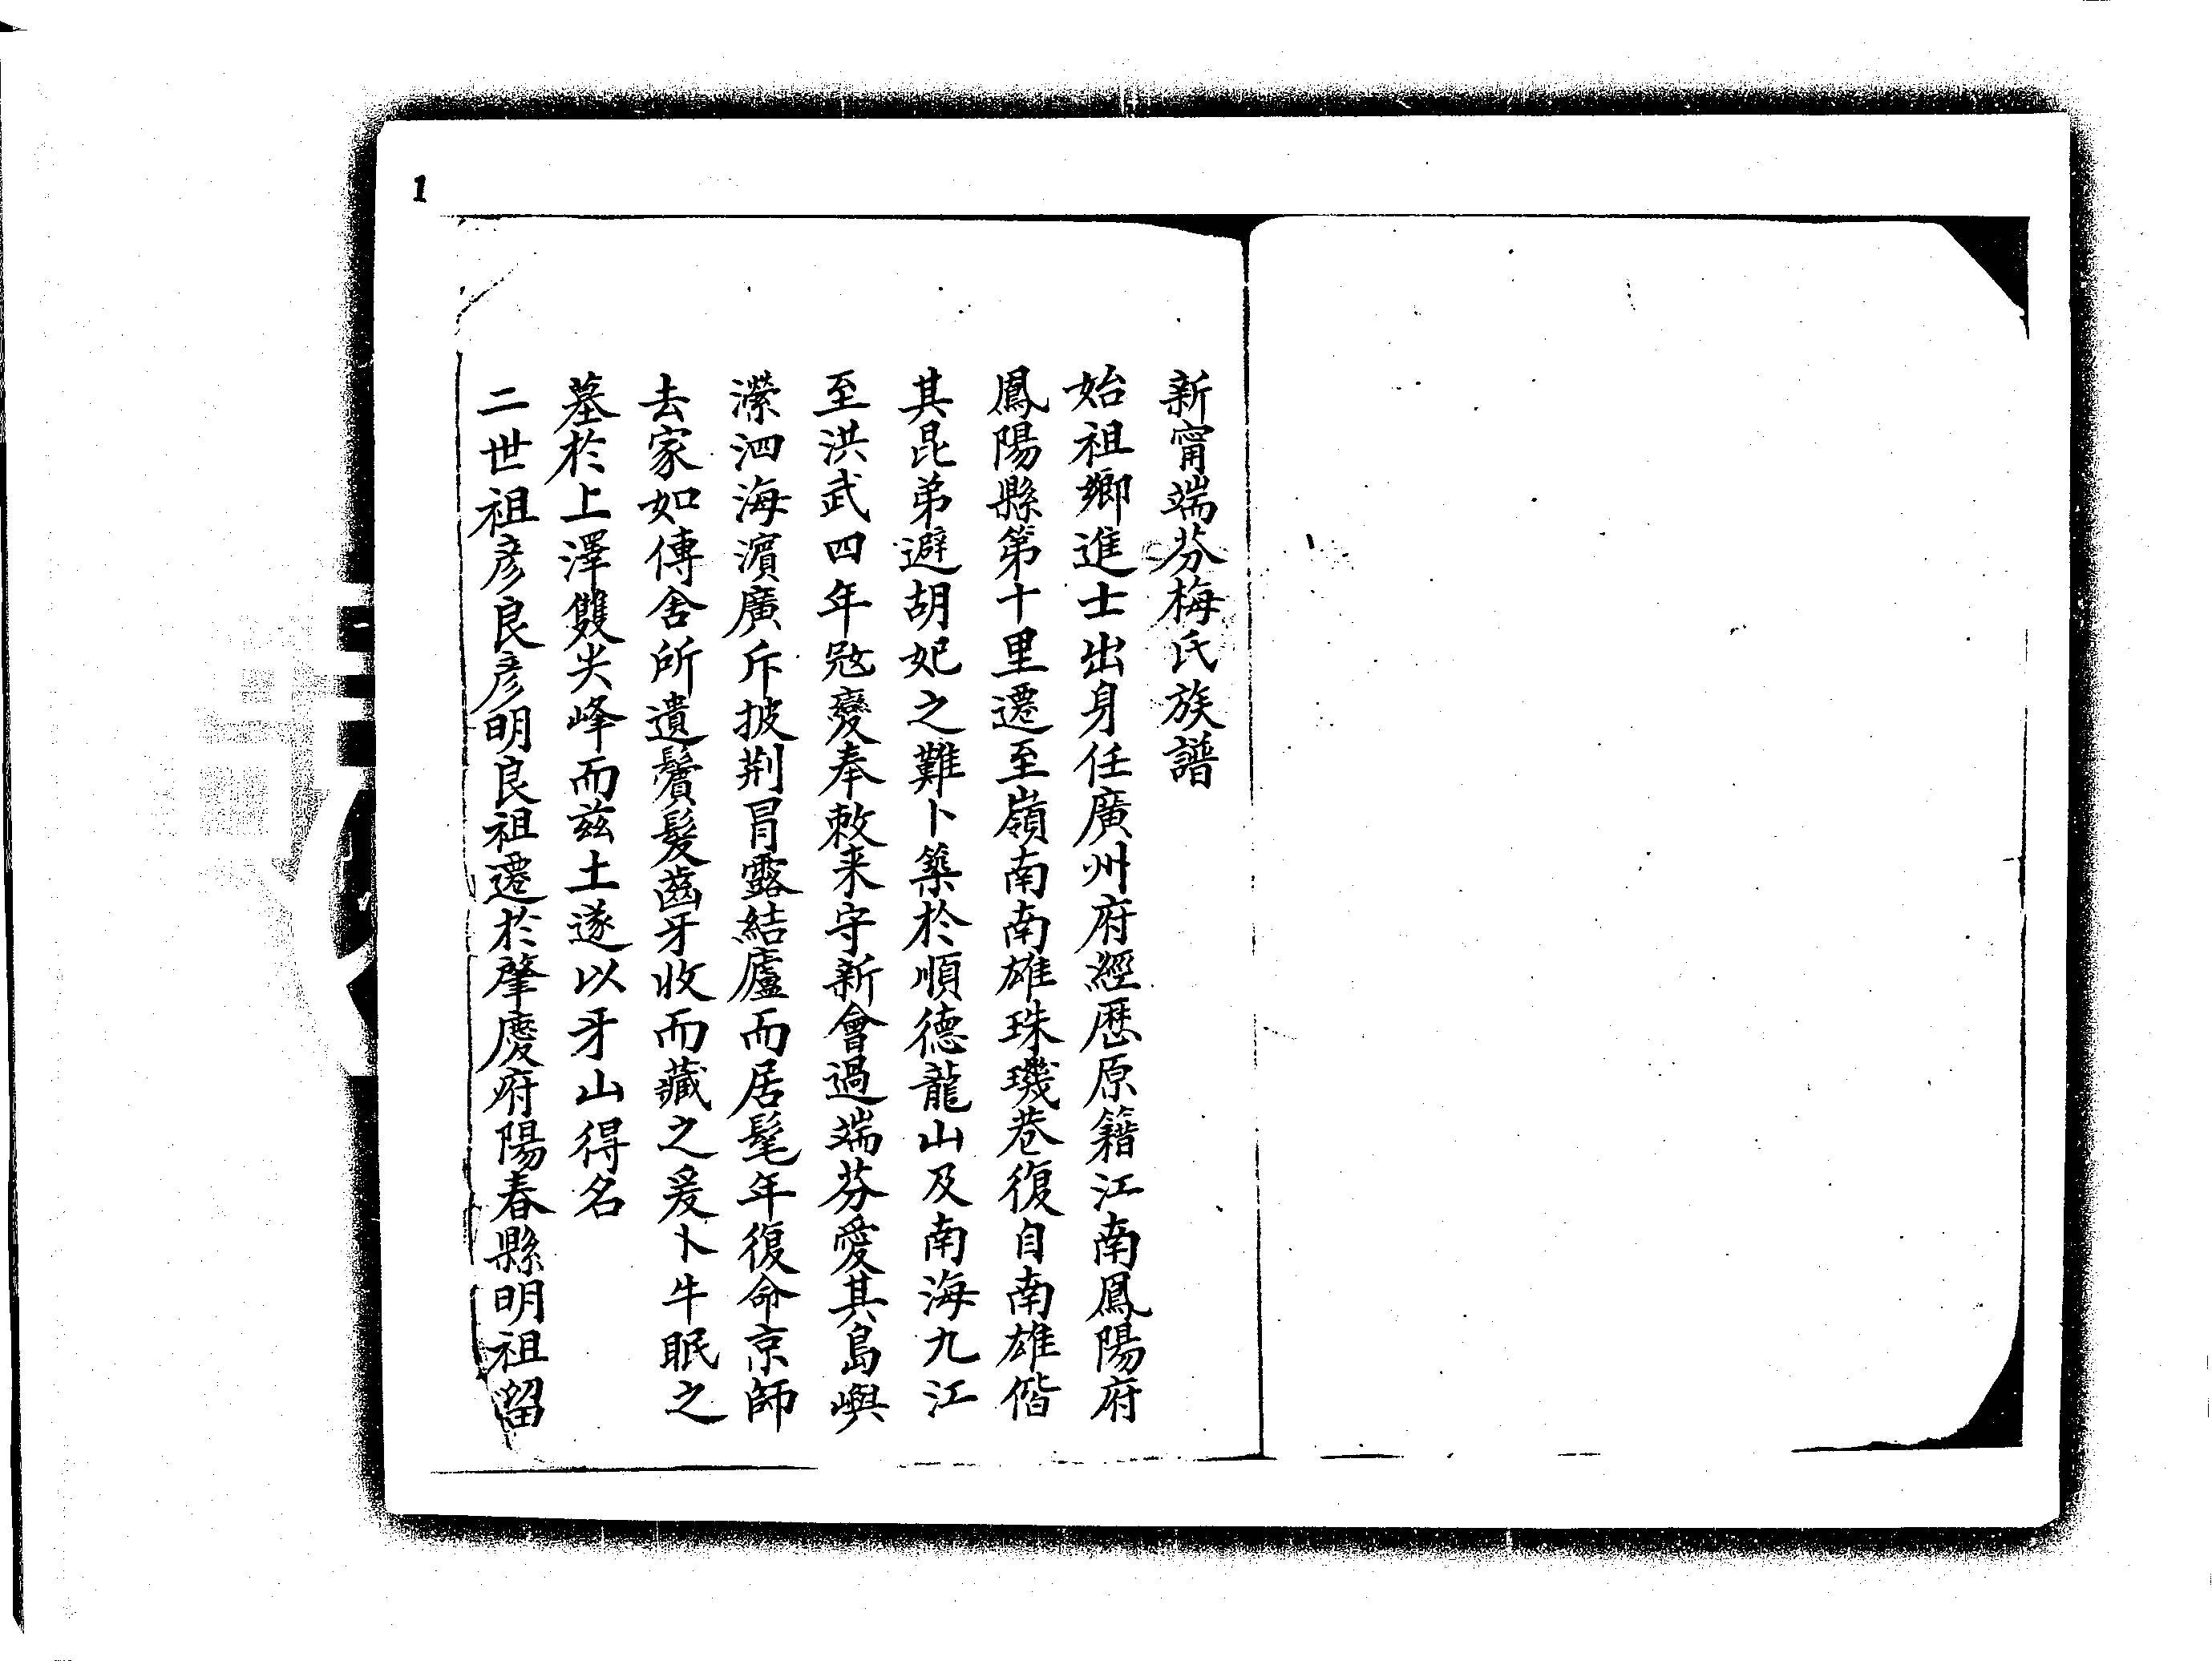 1
新甯端芬梅氏族譜
始祖鄉進士出身任廣州府經歷原籍江南鳳陽府
鳳陽縣第十里遷至嶺南南雄珠璣巷復自南雄偕
其昆弟避胡妃之難卜築於順德龍山及南海九江
至洪武四年寇變奉敕来守新會過端芬愛其島嶼
瀠泗海濵廣斥披荆冐露結廬而居髦年復命京師
去家如傳舍所遺鬢髮齒牙收而藏之爰卜牛眠之
墓於上澤雙尖峰而兹土遂以牙山得名
二世祖彦良彦明良祖遷於肇慶府陽春縣明祖留